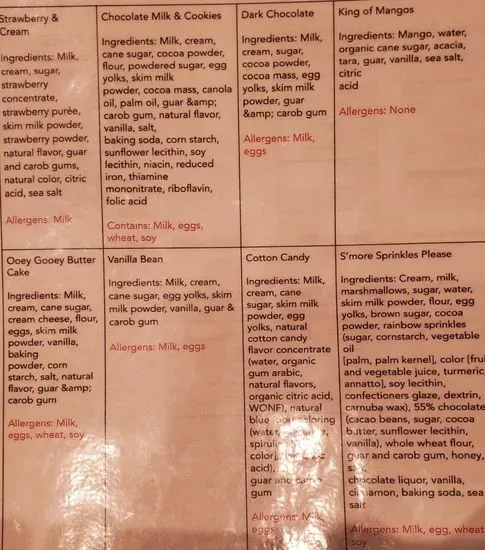 Strawberry &
Cream
Ingredients: Milk,
cream, sugar,
strawberry
concentrate,
strawberry purée,
skim milk powder,
strawberry powder,
natural flavor, guar
and carob gums,
natural color, citric
acid, sea salt
Allergens: Milk
Chocolate Milk & Cookies
Ingredients: Milk, cream,
cane sugar, cocoa powder,
flour, powdered sugar, egg
yolks, skim milk
powder, cocoa mass, canola
oil, palm oil, guar &amp;
carob gum, natural flavor,
vanilla, salt,
baking soda, corn starch,
sunflower lecithin, soy
lecithin, niacin, reduced
iron, thiamine
mononitrate, riboflavin,
folic acid
Contains: Milk, eggs,
wheat, soy
Dark Chocolate
Ingredients: Milk,
cream, sugar,
cocoa powder,
cocoa mass, egg
yolks, skim milk
powder, guar
&amp; carob gum
Allergens: Milk,
eggs
King of Mangos
Ingredients: Mango, water,
organic cane sugar, acacia,
tara, guar, vanilla, sea salt,
citric
acid
Allergens: None
Ooey Gooey Butter
Cake
Ingredients: Milk,
cream, cane sugar,
cream cheese, flour,
eggs, skim milk
powder, vanilla,
baking
powder, corn
starch, salt, natural
flavor, guar &amp;
carob gum
Allergens: Milk,
eggs, wheat, soy
Vanilla Bean
Ingredients: Milk, cream,
cane sugar, egg yolks, skim
milk powder, vanilla, guar &
carob gum
Allergens: Milk, eggs
Cotton Candy
Ingredients: Milk,
cream, cane
sugar, skim milk
powder, egg
yolks, natural
cotton candy
flavor concentrate
(water, organic
gum arabic,
natural flavors,
organic citric acid,
WONF), natural
blue coloring
(water,
color],
acid),
guar and carob
gum
Allergens: Milk,
eggs
S'more Sprinkles Please
Ingredients: Cream, milk,
marshmallows, sugar, water,
skim milk powder, flour, egg
yolks, brown sugar, cocoa
powder, rainbow sprinkles
(sugar, cornstarch, vegetable
oil
[palm, palm kernel], color [frui
and vegetable juice, turmeric
annatto], soy lecithin,
confectioners glaze, dextrin,
carnuba wax), 55% chocolate
(cacao beans, sugar, cocoa
butter, sunflower lecithin,
vanilla), whole wheat flour,
guar and carob gum, honey,
chocolate liquor, vanilla,
cinnamon, baking soda, sea
salt
Allergens: Milk, egg, wheat
soy